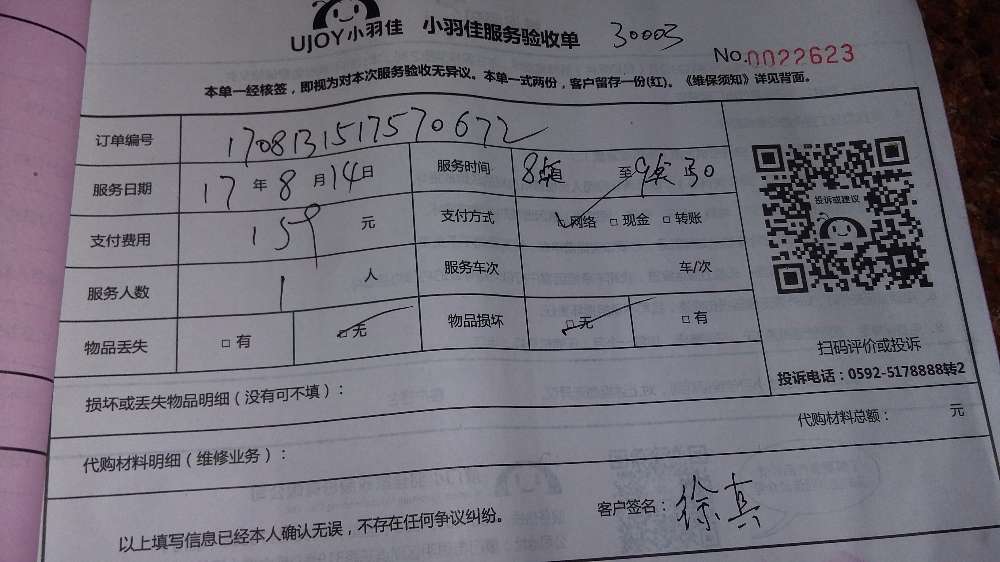 UJOY小羽佳 小羽佳服务验收单 30003
No.0022623
本单一经核签，即视为对本次服务验收无异议。本单一式两份，客户留存一份(红)。《维保须知》详见背面。
订单编号 1708131517570672
服务日期 17年8月14日 服务时间 8点 至 9点30
支付费用 159 元 支付方式 网络 □ 现金 □ 转账
服务人数 1 人 服务车次 车/次
物品丢失 □ 有 □ 无 物品损坏 □ 无 □ 有
投诉或建议
扫码评价或投诉
投诉电话：0592-5178888转2
损坏或丢失物品明细（没有可不填）：
代购材料明细（维修业务）： 代购材料总额： 元
以上填写信息已经本人确认无误，不存在任何争议纠纷。 客户签名：徐真